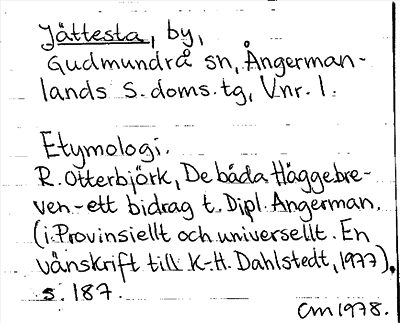 Jättesta, by,
Gudmundrå sn, Ångerman-
lands s.doms.tg, Vnr. 1.
Etymologi.
R. Otterbjörk, De båda Häggebre-
ven - ett bidrag t. Dipl. Angerman.
(i: Provinsiellt och universellt. En
vänskrift till K-H. Dahlstedt, 1977),
s. 187.
CM 1978.